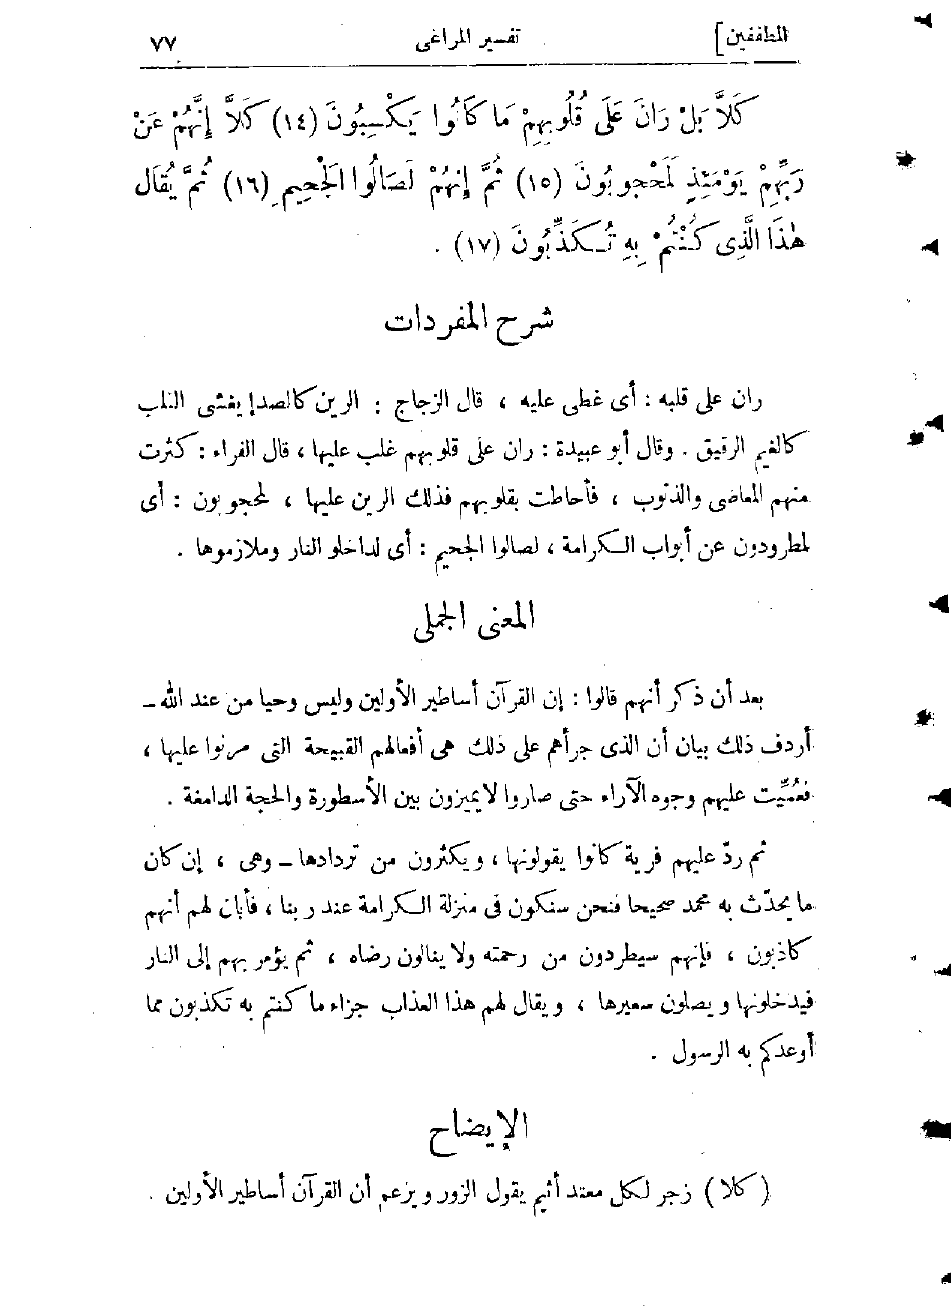 المطففين] تفسير المراغى ٧٧
كَلاَّ بَلْ رَانَ عَلَى قُلُوبِهِمْ مَا كَانُوا يَكْسِبُونَ (١٤) كَلاَّ إِنَّهُمْ عَنْ
رَبِّهِمْ يَوْمَئِذٍ لَمَحْجُوبُونَ (١٥) ثُمَّ إِنَّهُمْ لَصَالُوا الْجَحِيمِ (١٦) ثُمَّ يُقَالُ
هٰذَا الَّذِى كُنْتُمْ بِهِ تُكَذِّبُونَ (١٧) .
شرح المفردات
ران على قلبه : أى غطى عليه ، قال الزجاج : الرين كالصدإ يغشى القلب
كالغيم الرقيق . وقال أبو عبيدة : ران على قلوبهم غلب عليها ، قال الفراء : كثرت
منهم المعاصى والذنوب ، فأحاطت بقلوبهم فذلك الرين عليها ، لمحجوبون : أى
لمطرودون عن أبواب الكرامة ، لصالوا الجحيم : أى لداخلو النار وملازموها .
المعنى الجملى
بعد أن ذكر أنهم قالوا : إن القرآن أساطير الأولين وليس وحيا من عند الله –
أردف ذلك بيان أن الذى جرأهم على ذلك هى أفعالهم القبيحة التى مرنوا عليها ،
فعُمِّيت عليهم وجوه الآراء حتى صاروا لايميزون بين الأسطورة والحجة الدامغة .
ثم ردّ عليهم فرية كانوا يقولونها ، ويكثرون من تردادها – وهى ، إن كان
ما يحدّث به محمد صحيحا فنحن سنكون فى منزلة الكرامة عند ربنا ، فأبان لهم أنهم
كاذبون ، فإنهم سيطردون من رحمته ولا ينالون رضاه ، ثم يؤمر بهم إلى النار
فيدخلونها ويصلون سعيرها ، ويقال لهم هذا العذاب جزاء ما كنتم به تكذبون مما
أوعدكم به الرسول .
الإيضاح
(كلا) زجر لكل معتد أثيم يقول الزور ويزعم أن القرآن أساطير الأولين .